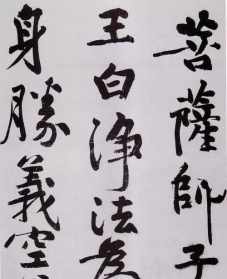 菩薩師子
王白淨法為
身勝義空